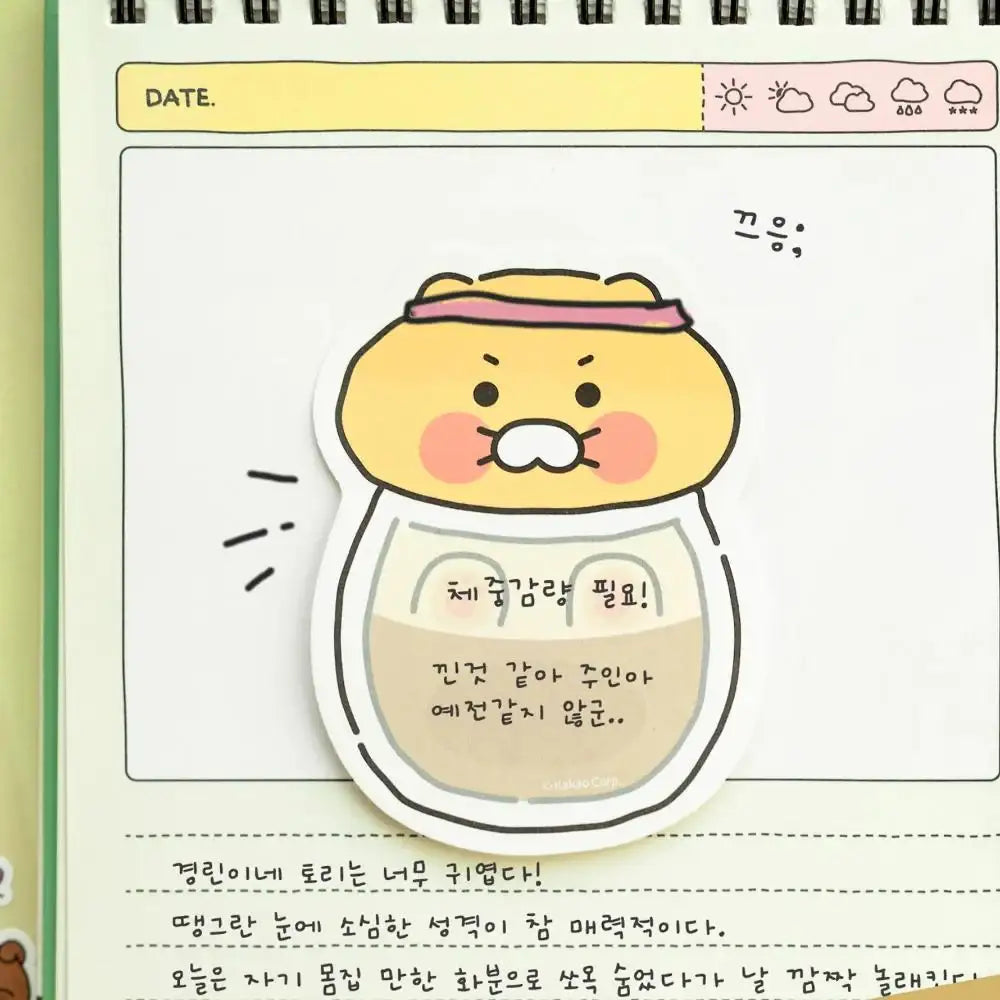 DATE.
끄응;
체중감량 필요!
낀것 같아 주인아
예전같지 않군..
© Kakao Corp.
경린이네 토리는 너무 귀엽다!
땡그란 눈에 소심한 성격이 참 매력적이다.
오늘은 자기 몸집 만한 화분으로 쏘옥 숨었다가 날 깜짝 놀래킨다